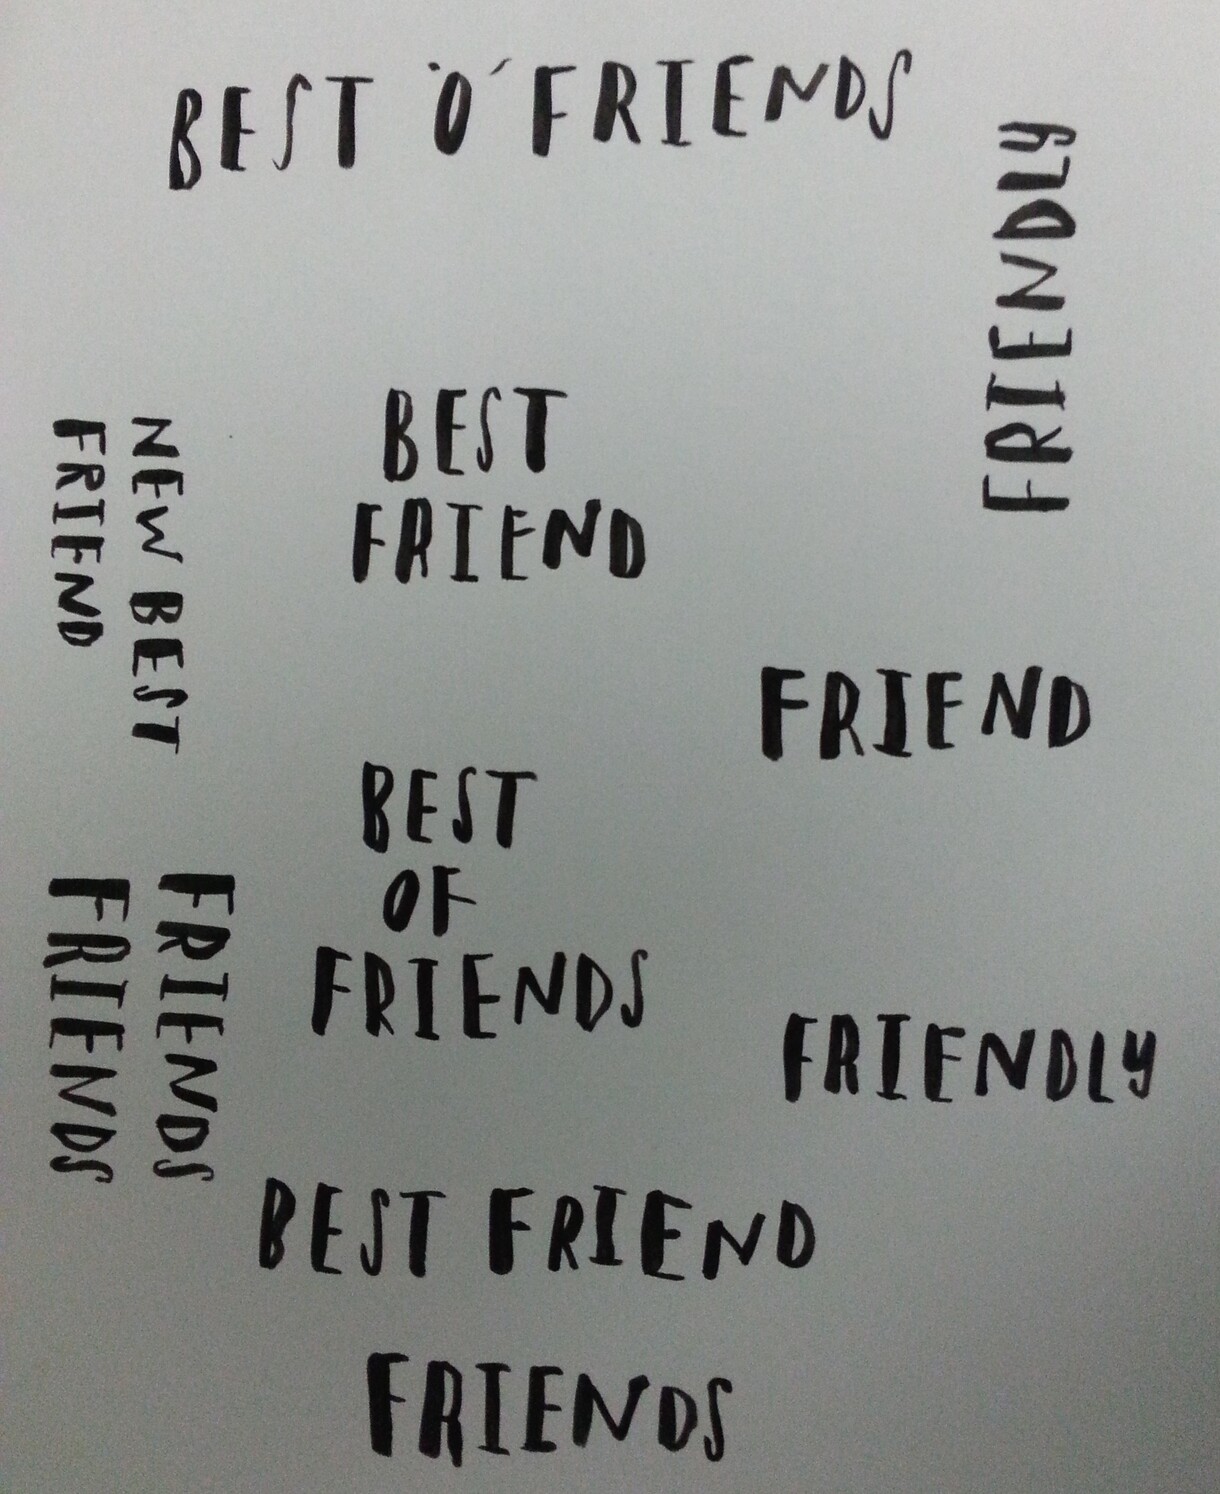 BEST 'O' FRIENDS
FRIENDLY
BEST
FRIEND
NEW BEST
FRIEND
FRIEND
BEST
OF
FRIENDS
FRIENDS
FRIENDS
FRIENDLY
BEST FRIEND
FRIENDS